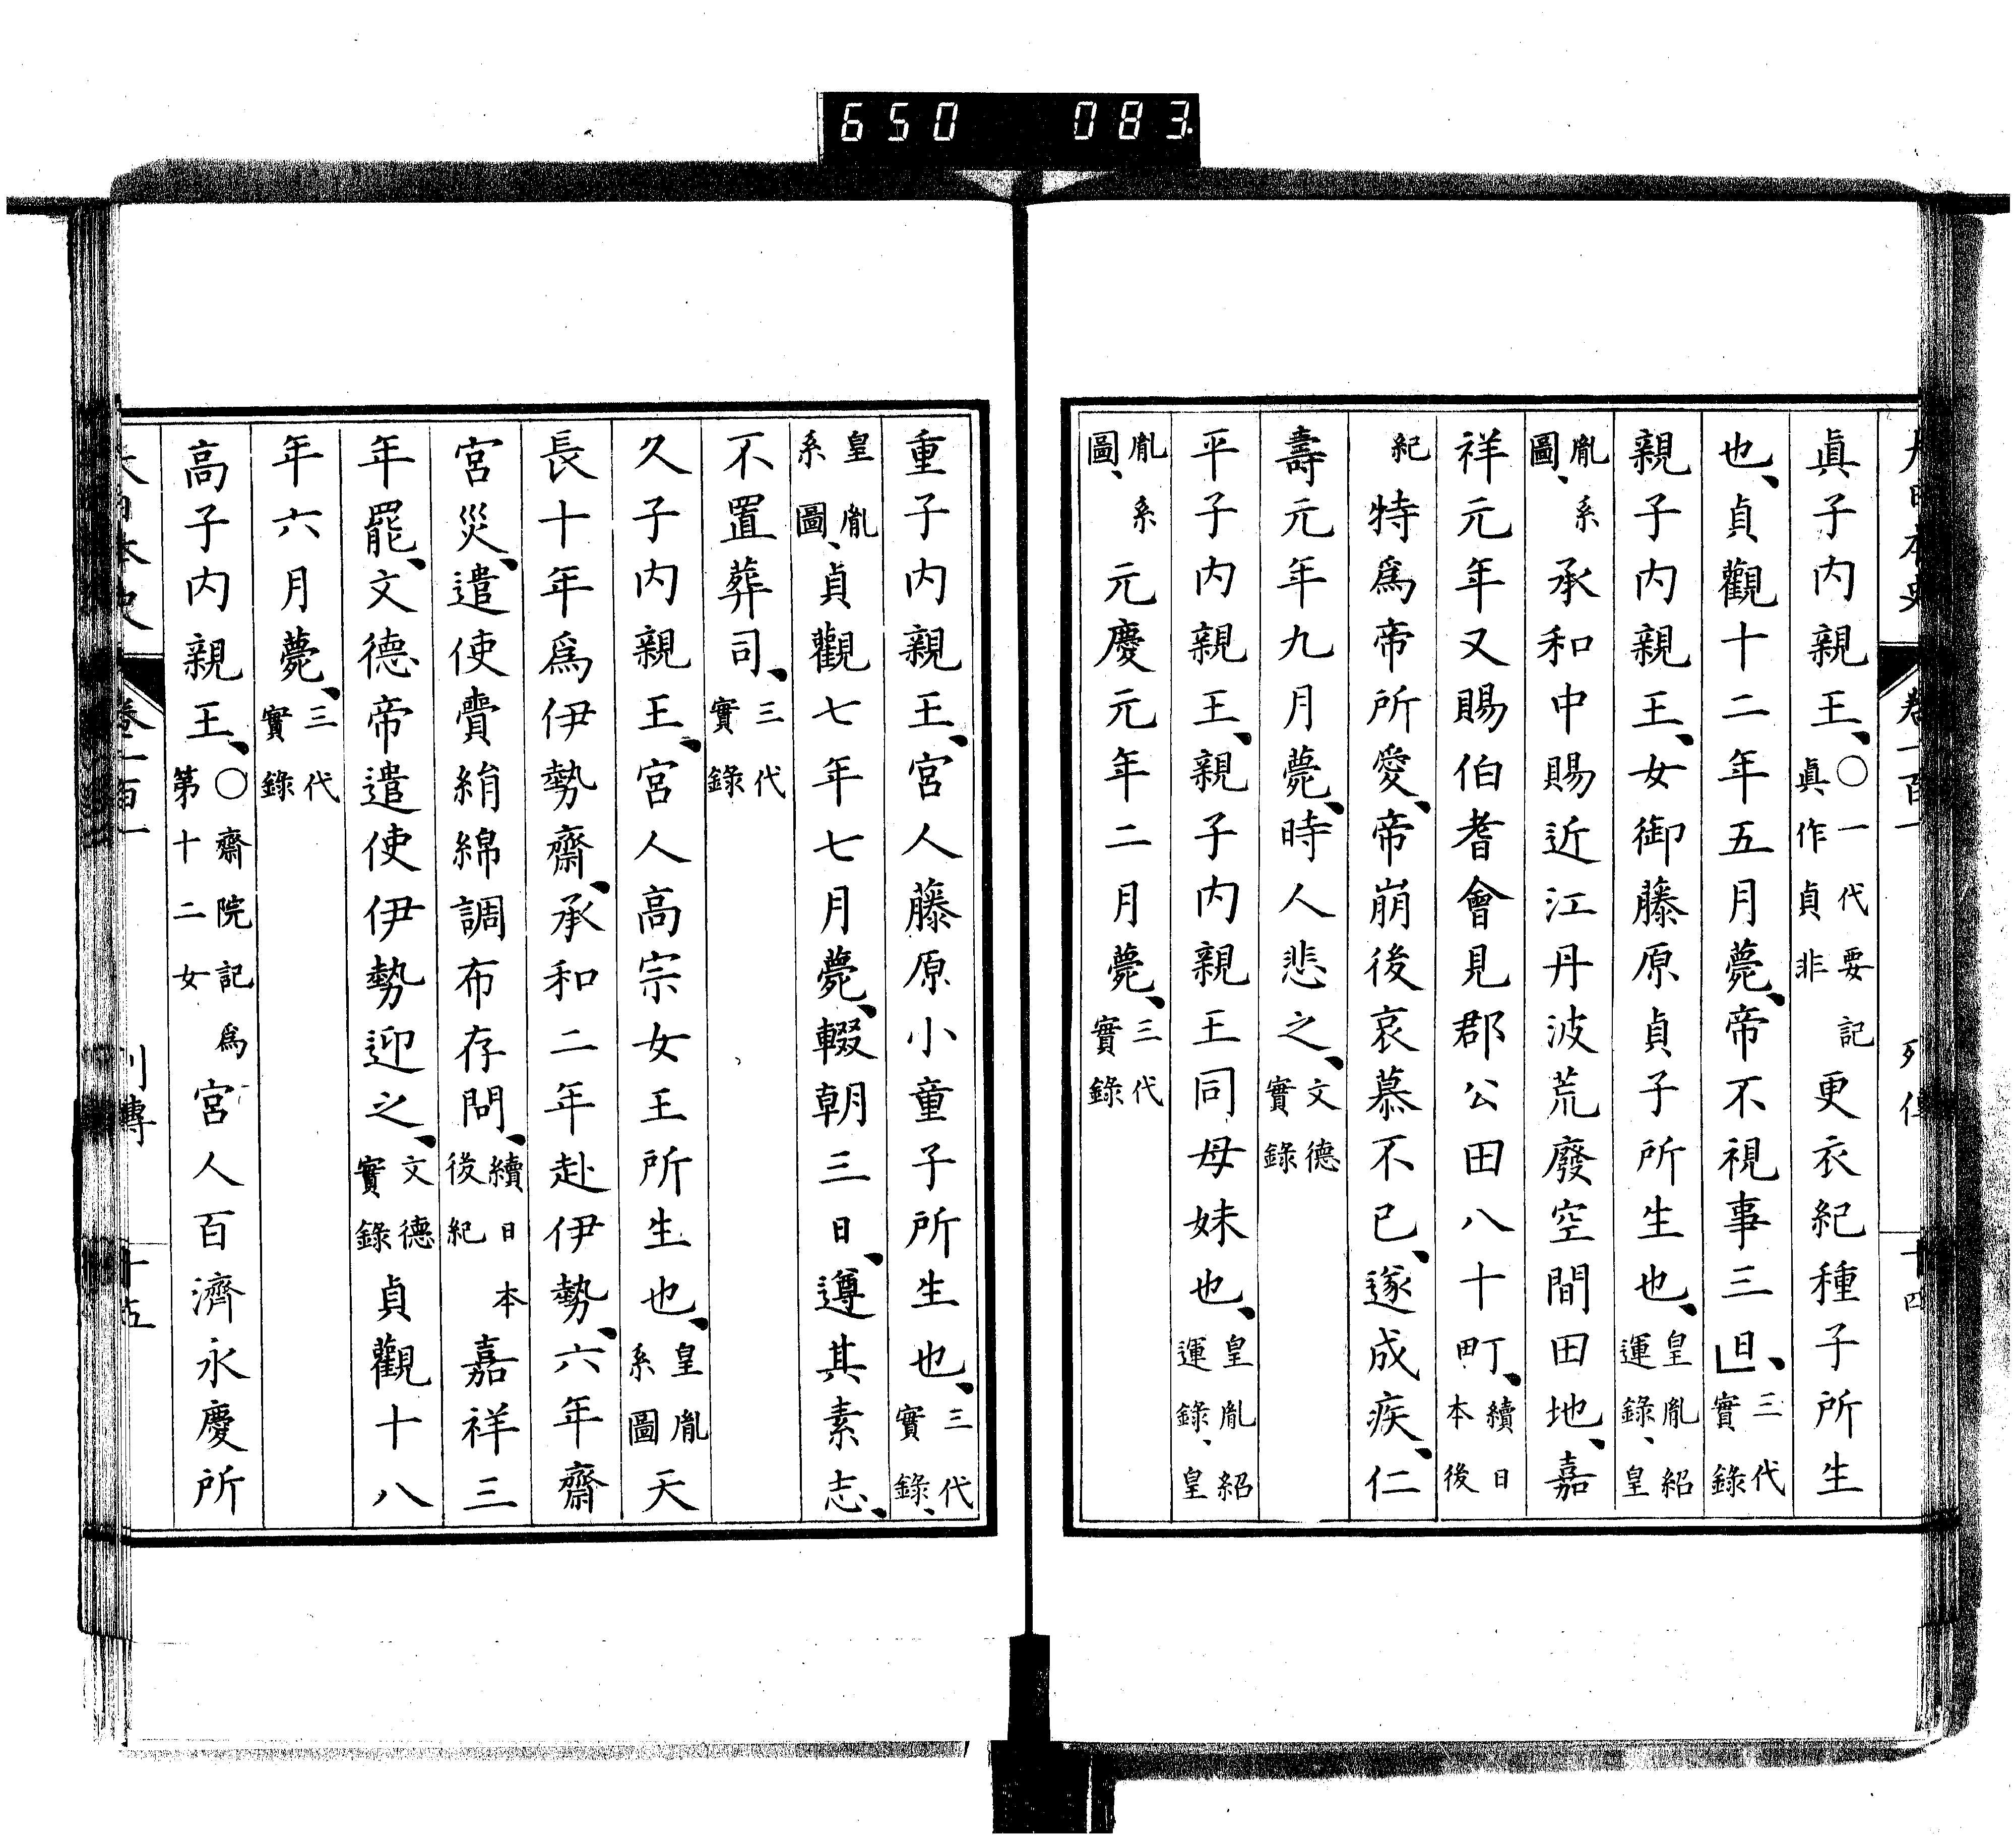 650 083
大日本史 卷一百一 列傳 十四
眞子内親王、〇一代要記眞作貞非更衣紀種子所生
也、貞觀十二年五月薨、帝不視事三日、三代實錄
親子内親王、女御藤原貞子所生也、皇胤紹運錄、皇
胤系圖、承和中賜近江丹波荒廢空間田地、嘉
祥元年又賜伯耆會見郡公田八十町、續日本後
紀特爲帝所愛、帝崩後哀慕不已、遂成疾、仁
壽元年九月薨、時人悲之、文德實錄
平子内親王、親子内親王同母妹也、皇胤紹運錄、皇
胤系圖、元慶元年二月薨、三代實錄
重子内親王、宮人藤原小童子所生也、三代實錄、
皇胤系圖、貞觀七年七月薨、輟朝三日、遵其素志、
不置葬司、三代實錄
久子内親王、宮人高宗女王所生也、皇胤系圖天
長十年爲伊勢齋、承和二年赴伊勢、六年齋
宮災、遣使賷絹綿調布存問、續日本後紀嘉祥三
年罷、文德帝遣使伊勢迎之、文德實錄貞觀十八
年六月薨、三代實錄
高子内親王、〇齋院記爲第十二女宮人百濟永慶所
大日本史 卷一百一 列傳 十五